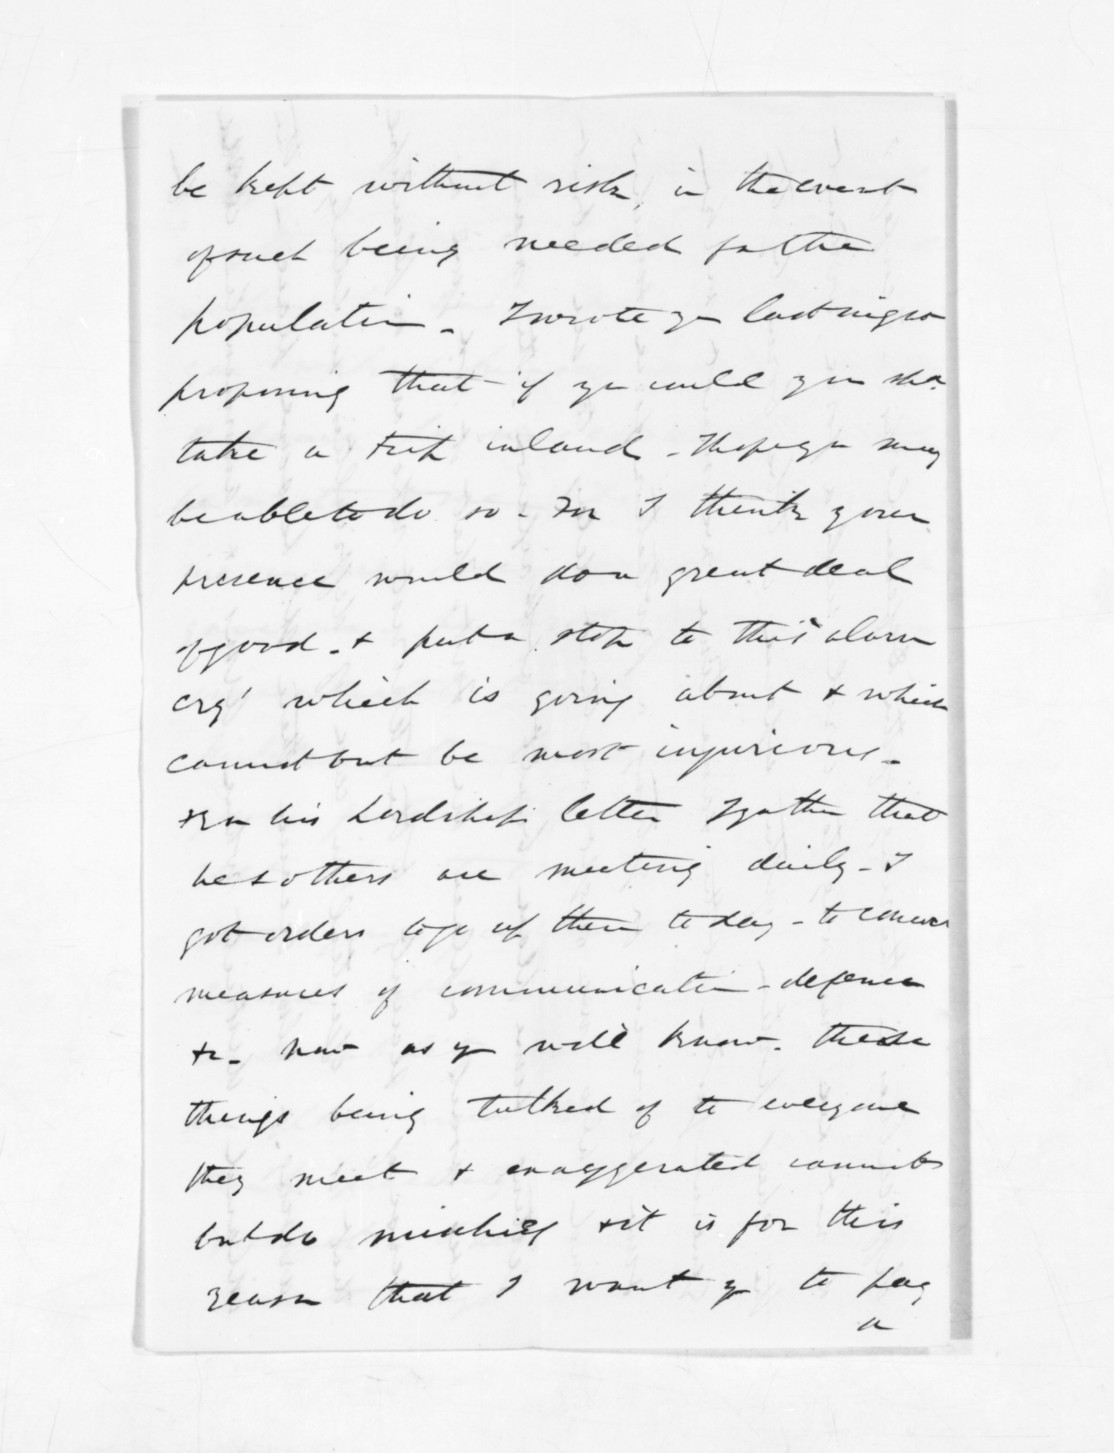 be kept without risk, in the event
of such being needed for the
population. I wrote yr last night
proposing that if you could you shd.
take a trip inland. I hope you may
be able to do so. For I think your
presence would do a great deal
of good. & put a stop to this 'alarm
cry' which is going about & which
cannot but be most injurious.
From his Lordships letter I gather that
he & others are meeting daily. I
got orders to go up there to day - to concert
measures of communication - defence
&c. Now as you well know. these
things being talked of to everyone
they meet & exaggerated cannot
but do mischief & it is for this
reason that I want you to pay
a